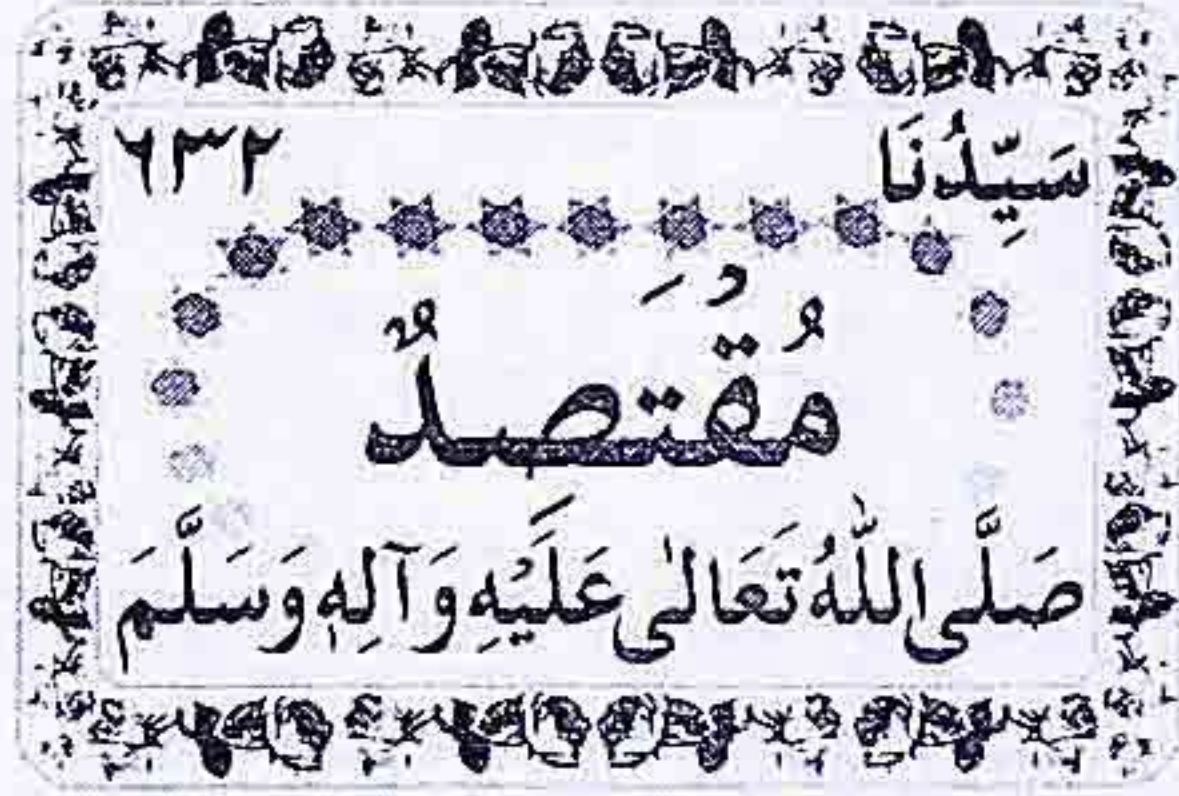 سَيِّدُنَا ٦٣٢
مُقْتَصِدٌ
صَلَّى اللّٰهُ تَعَالٰى عَلَيْهِ وَآلِهٖ وَسَلَّمَ